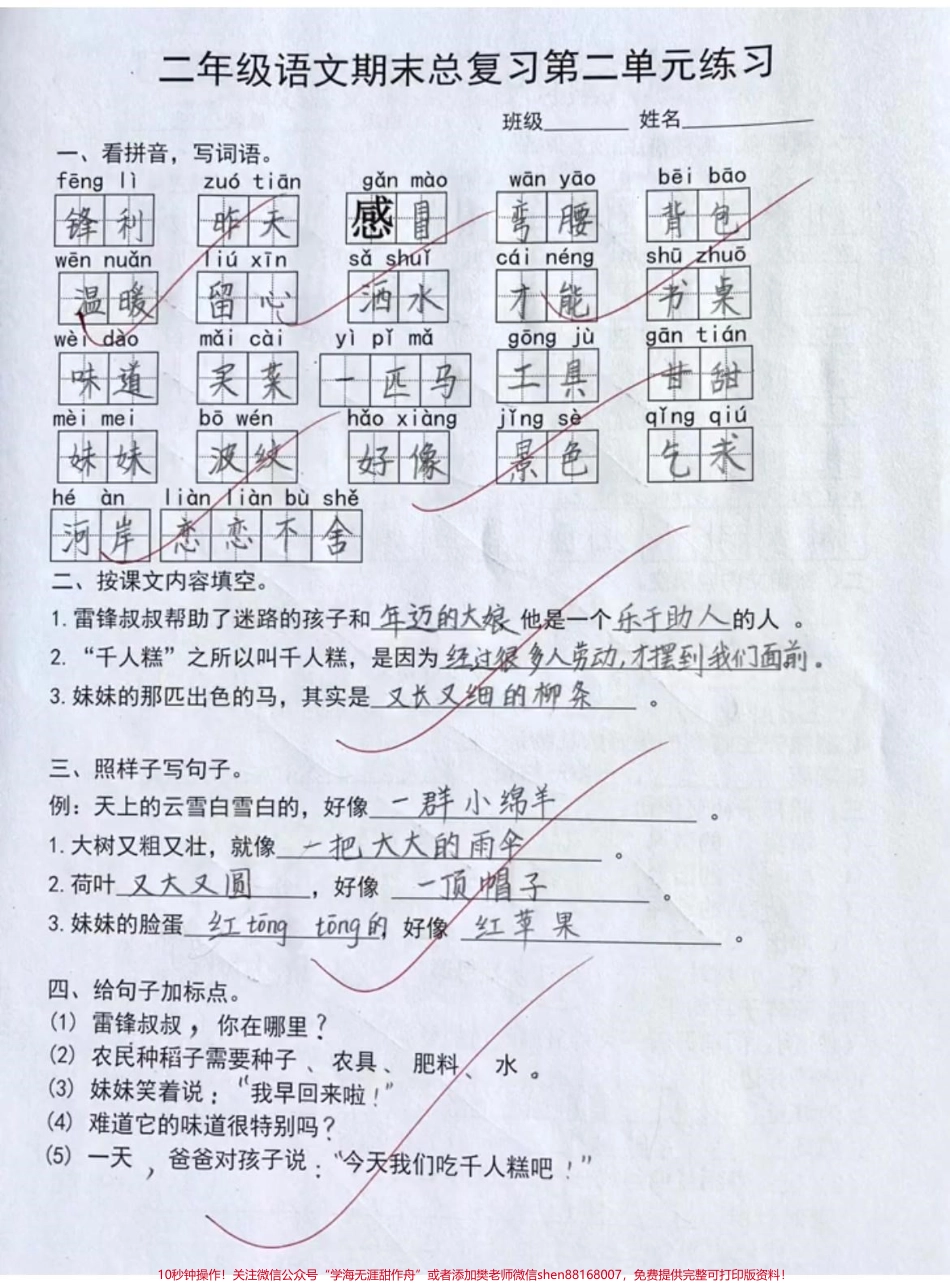 二年级语文期末总复习第二单元练习
班级________ 姓名____________
一、看拼音，写词语。
fēng lì zuó tiān gǎn mào wān yāo bēi bāo
锋利 昨天 感冒 弯腰 背包
wēn nuǎn liú xīn sǎ shuǐ cái néng shū zhuō
温暖 留心 洒水 才能 书桌
wèi dào mǎi cài yì pǐ mǎ gōng jù gān tián
味道 买菜 一匹马 工具 甘甜
mèi mei bō wén hǎo xiàng jǐng sè qǐng qiú
妹妹 波纹 好像 景色 乞求
hé àn liàn liàn bù shě
河岸 恋恋不舍
二、按课文内容填空。
1.雷锋叔叔帮助了迷路的孩子和年迈的大娘他是一个乐于助人的人。
2.“千人糕”之所以叫千人糕，是因为经过很多人劳动，才摆到我们面前。
3.妹妹的那匹出色的马，其实是又长又细的柳条。
三、照样子写句子。
例：天上的云雪白雪白的，好像一群小绵羊。
1.大树又粗又壮，就像一把大大的雨伞。
2.荷叶又大又圆，好像一顶帽子。
3.妹妹的脸蛋红tōng tōng的 好像红苹果。
四、给句子加标点。
(1) 雷锋叔叔，你在哪里？
(2) 农民种稻子需要种子、农具、肥料、水。
(3) 妹妹笑着说：“我早回来啦！”
(4) 难道它的味道很特别吗？
(5) 一天，爸爸对孩子说：“今天我们吃千人糕吧！”
10秒钟操作！关注微信公众号“学海无涯甜作舟”或者添加樊老师微信shen88168007，免费提供完整可打印版资料！